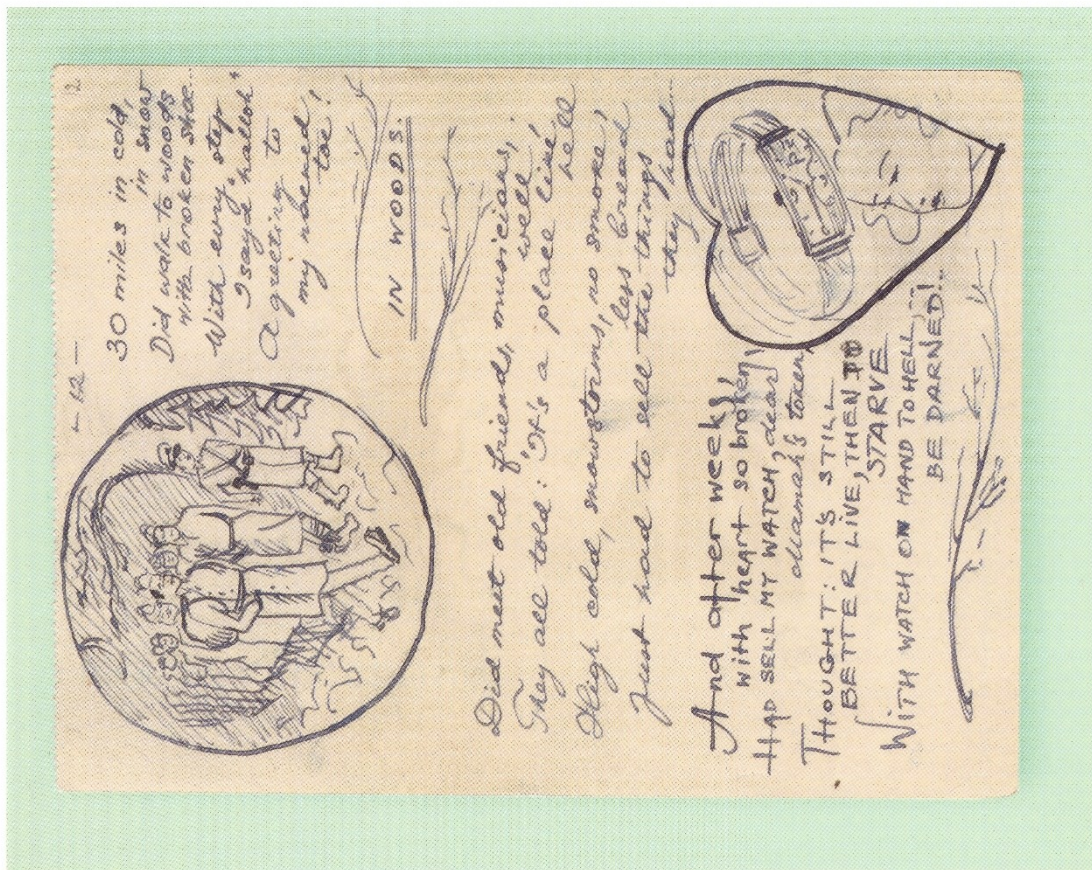 - 12 -
30 miles in cold,
in snow
Did walk to woods
with broken shoe...
With evry step
I sayde "halloh"
A greeting to
my noened toe!
IN WOODS.
Did meet old friends, musicians,
well,
They all told: "It's a place like
hell
High cold, snowstorms, no smoke,
less bread
Just had to sell the things
they had...
And after week,
with heart so broken,
HAD SELL MY WATCH, dear
mamah's token,
THOUGHT: IT'S STILL
BETTER LIVE, THEN TO
STARVE
WITH WATCH ON HAND TO HELL,
BE DARNED!..